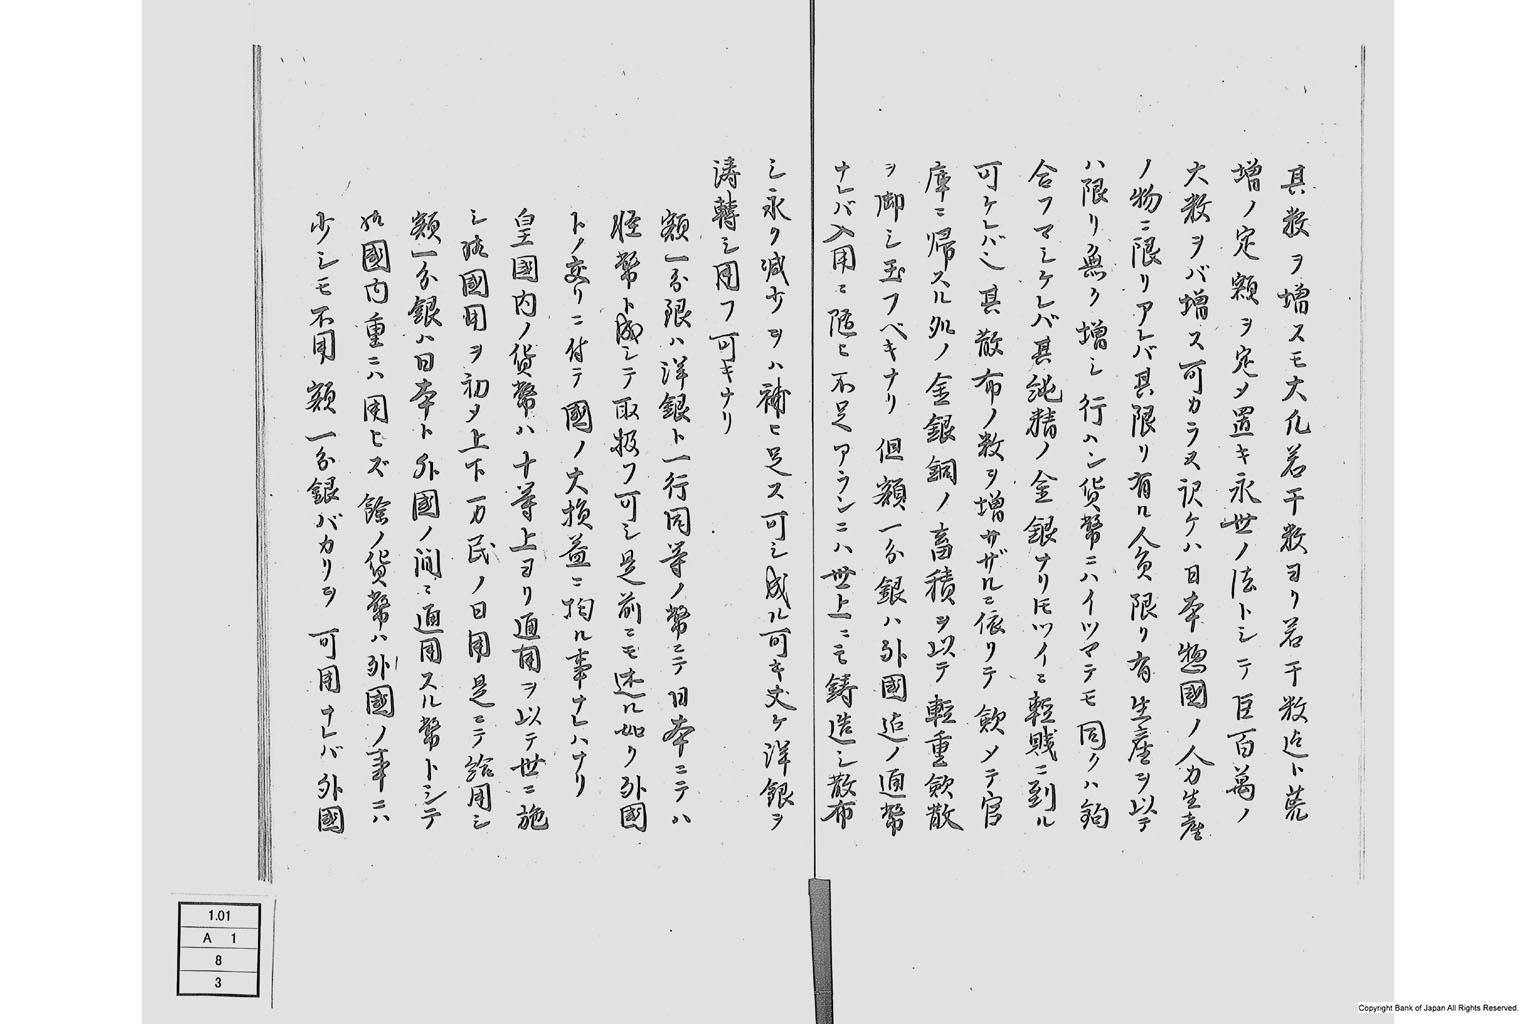 其数ヲ増スモ大凡若干数ヨリ若干数迄ト荒
増ノ定額ヲ定メ置キ永世ノ法トシテ臣百萬ノ
大数ヲバ増ス可カラス訳ケハ日本惣國ノ人力生産
ノ物ニ限リアレバ其限リ有ル人負限リ有生産ヲ以テ
ハ限リ無ク増シ行ハン貨幣ニハイツマテモ同クハ鈞
合フマシケレバ其純精ノ金銀ナリ𪜈ツイニ輕賎ニ到ル
可ケレバ也其散布ノ数ヲ増サザルニ依リテ歛メテ官
庫ニ帰スル処ノ金銀銅ノ畜積ヲ以テ輕重歛散
ヲ御シ玉フベキナリ 但額一分銀ハ外國迠ノ通幣
ナレバ入用ニ随ヒ不足アランニハ世上ニモ鋳造シ散布
シ永ク减少ヲハ補ヒ足ス可シ成ル可キ丈ケ洋銀ヲ
鋳轉シ用フ可キナリ
額一分限ハ洋銀ト一行同等ノ幣ニテ日本ニテハ
幣ト成シテ取扱フ可シ是前ニモ述ル如ク外國
トノ交リニ付テ國ノ大損益ニ拘ル事ナレハナリ
皇國内ノ貨幣ハ十等上ヨリ通用ヲ以テ世ニ施
シ 國用ヲ初メ上下万民ノ日用是ニテ給用シ
額一分銀ハ日本ト外國ノ間ニ通用スル幣トシテ
國内重ニハ用ヒズ餘ノ貨幣ハ外國ノ事ニハ
少シモ不用 額一分銀バカリヲ可用ナレバ外國
1.01
A 1
8
3
Copyright Bank of Japan All Rights Reserved.